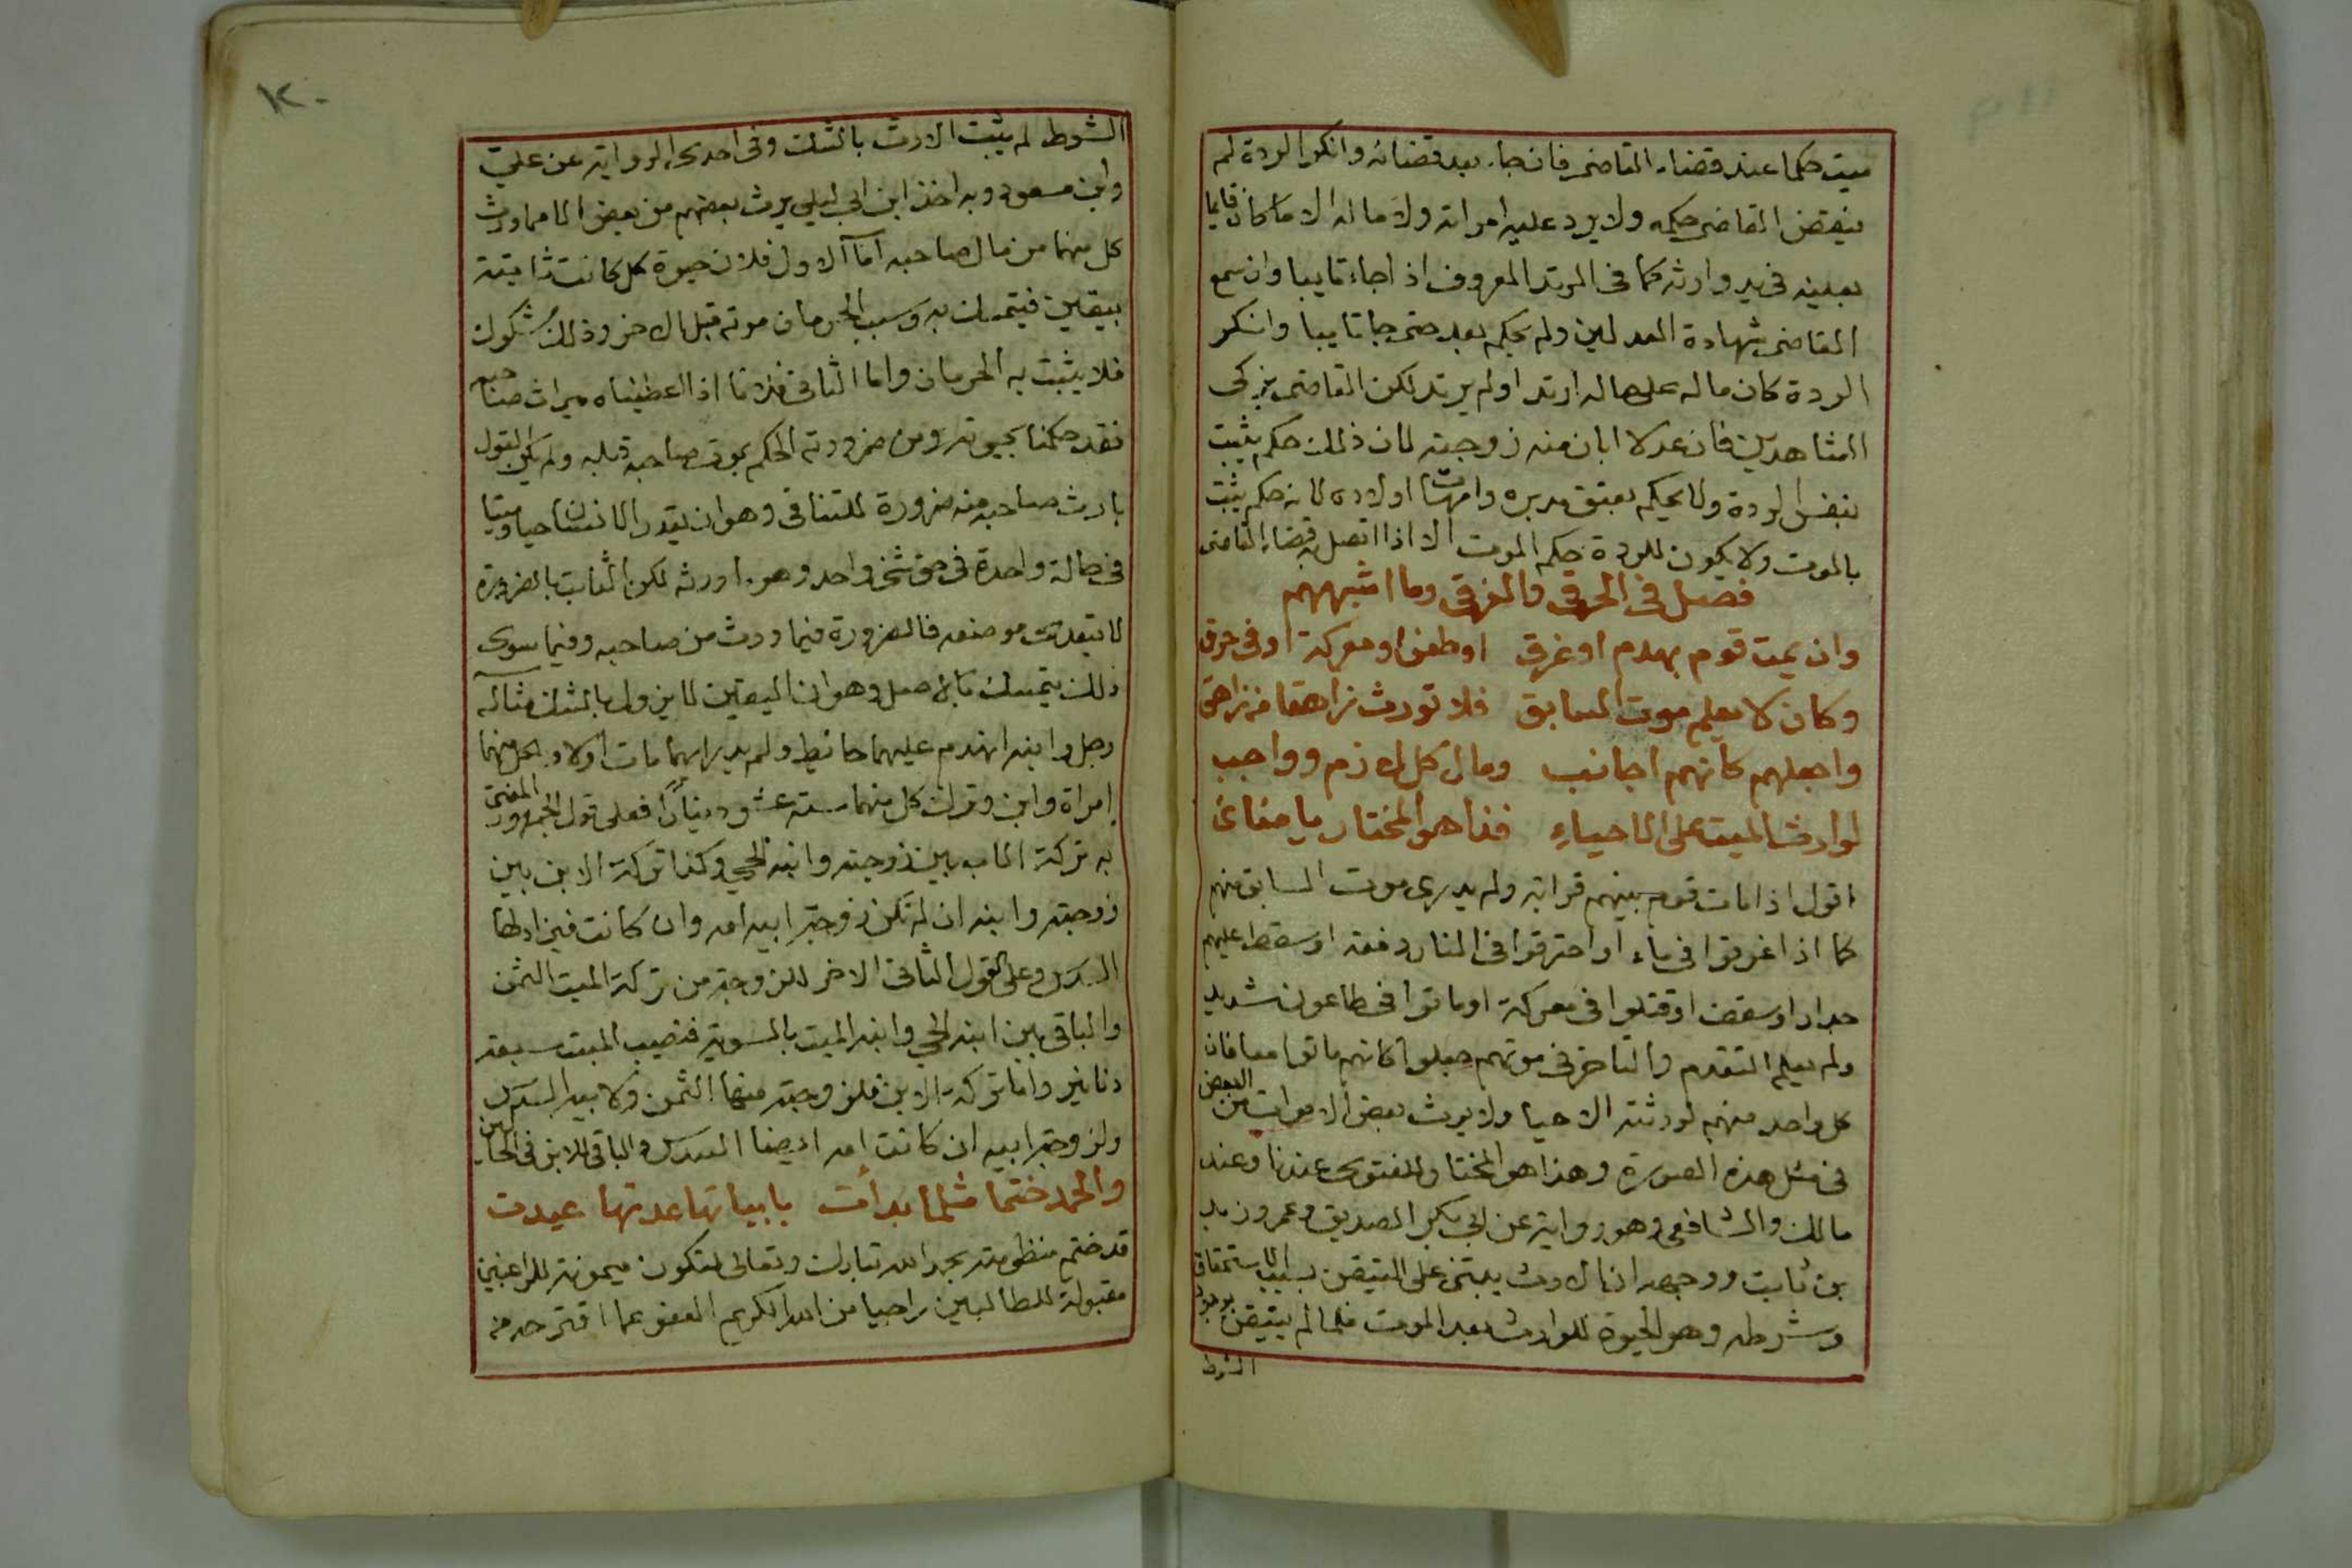 ميت حكما عند قضاء القاضى فان جاء بعد قضائه وانكر الردة لم
ينقض القاضى حكمه ولا يرد عليه امراته ولا ماله الا ما كان قايما
بعينه فى يد وارثه كما فى المرتد المعروف اذا جاء تايبا وان سمع
القاضى شهادة العدلين ولم يحكم بعد حتى جا تايبا وانكر
الردة كان ماله على حاله ارتد او لم يرتد لكن القاضى يزكى
الشاهدين فان عدلا ابان منه زوجته لان ذلك حكم يثبت
بنفس الردة ولا يحكم بعتق مدبره وامهات اولاده لانه حكم يثبت
بالموت ولا يكون للردة حكم الموت الا اذا اتصل به قضاء القاضى
فصل فى الحرقى والغرقى وما اشبههم
وان يمت قوم بهدم او غرق اوطعن او معركة او فى حرق
وكان لا يعلم موت السابق فلا تورث زاهقا من زاهق
واجعلهم كانهم اجانب ومال كل لازم وواجب
لوارث الميت على الاحياء فذا هو المختار يا صفاءى
اقول اذا مات قوم بينهم قرابة ولم يدرى موت السابق منهم
كما اذا غرقوا فى ماء او احترقوا فى النار دفعة او سقط عليهم
جدار او سقف او قتلوا فى معركة او ماتوا فى طاعون شديد
ولم يعلم التقدم والتاخر فى موتهم جعلوا كانهم ماتوا معا فان
كل واحد منهم لورثته الاحيا ولا يرث بعض الاموات من البعض
فى مثل هذه الصورة وهذا هو المختار والفتوى عندنا وعند
مالك والشافعى وهو رواية عن ابى بكر الصديق وعمر وزيد
بن ثابت ووجهه ان الارث يبتنى على التيقن بسبب الاستحقاق
وشرطه وهو الحيوة للوارث بعد الموت فلما لم يتيقن بوجود
الشرط
١٢٠
الشرط لم يثبت الارث بالشك وفى احدى الرواية عن على
وابن مسعود وبه اخذ ابن ابى ليلى يرث بعضهم من بعض الا مما ورث
كل منهما من مال صاحبه اما الاول فلان حيوة كل كانت ثابتة
بيقين فيتمسك به وسبب الحرمان موته قبل الاخر وذلك مشكوك
فلا يثبت به الحرمان واما الثانى فلانا اذا اعطيناه ميراث صاحبه
فقد حكمنا بحيوته ومن ضرورته الحكم بموت صاحبه قبله ولم يكن القول
بارث صاحبه منه ضرورة للتنافى وهو ان يقدر الانسان حيا وميتا
فى حالة واحدة فى حق شخص واحد وهو ما ورثه لكن الثابت بالضرورة
لا يتعدى موضعه فالضرورة فيما ورث من صاحبه وفيما سوى
ذلك يتمسك بالاصل وهو ان اليقين لا يزول بالشك مثاله
رجل وابنه انهدم عليهما حائط ولم يدر ايهما مات اولا ولكل منهما
امراة وابن وترك كل منهما ستة عشر دينارا فعلى قول الجمهور المفتى
به تركة الاب بين زوجته وابنه الحى وكذا تركة الابن بين
زوجته وابنه ان لم تكن زوجة ابيه امه وان كانت فيزاد لها
السدس وعلى القول الثانى الاخر للزوجة من تركة الميت الثمن
والباقى بين ابنه الحى وابنه الميت بالسوية فنصيب الميت سبعة
دنانير واما تركة الابن فلزوجته منها الثمن ولابيه السدس
ولزوجة ابيه ان كانت امه ايضا السدس والباقى للابن فى الحالين
والحمد ختما مثلما بدأت بابياتها عدتها عيدت
قد ختم منظومته بحمد الله تبارك وتعالى لتكون ميمونة للراغبين
مقبولة للطالبين راجيا من الله الكريم العفو عما اقترحه من